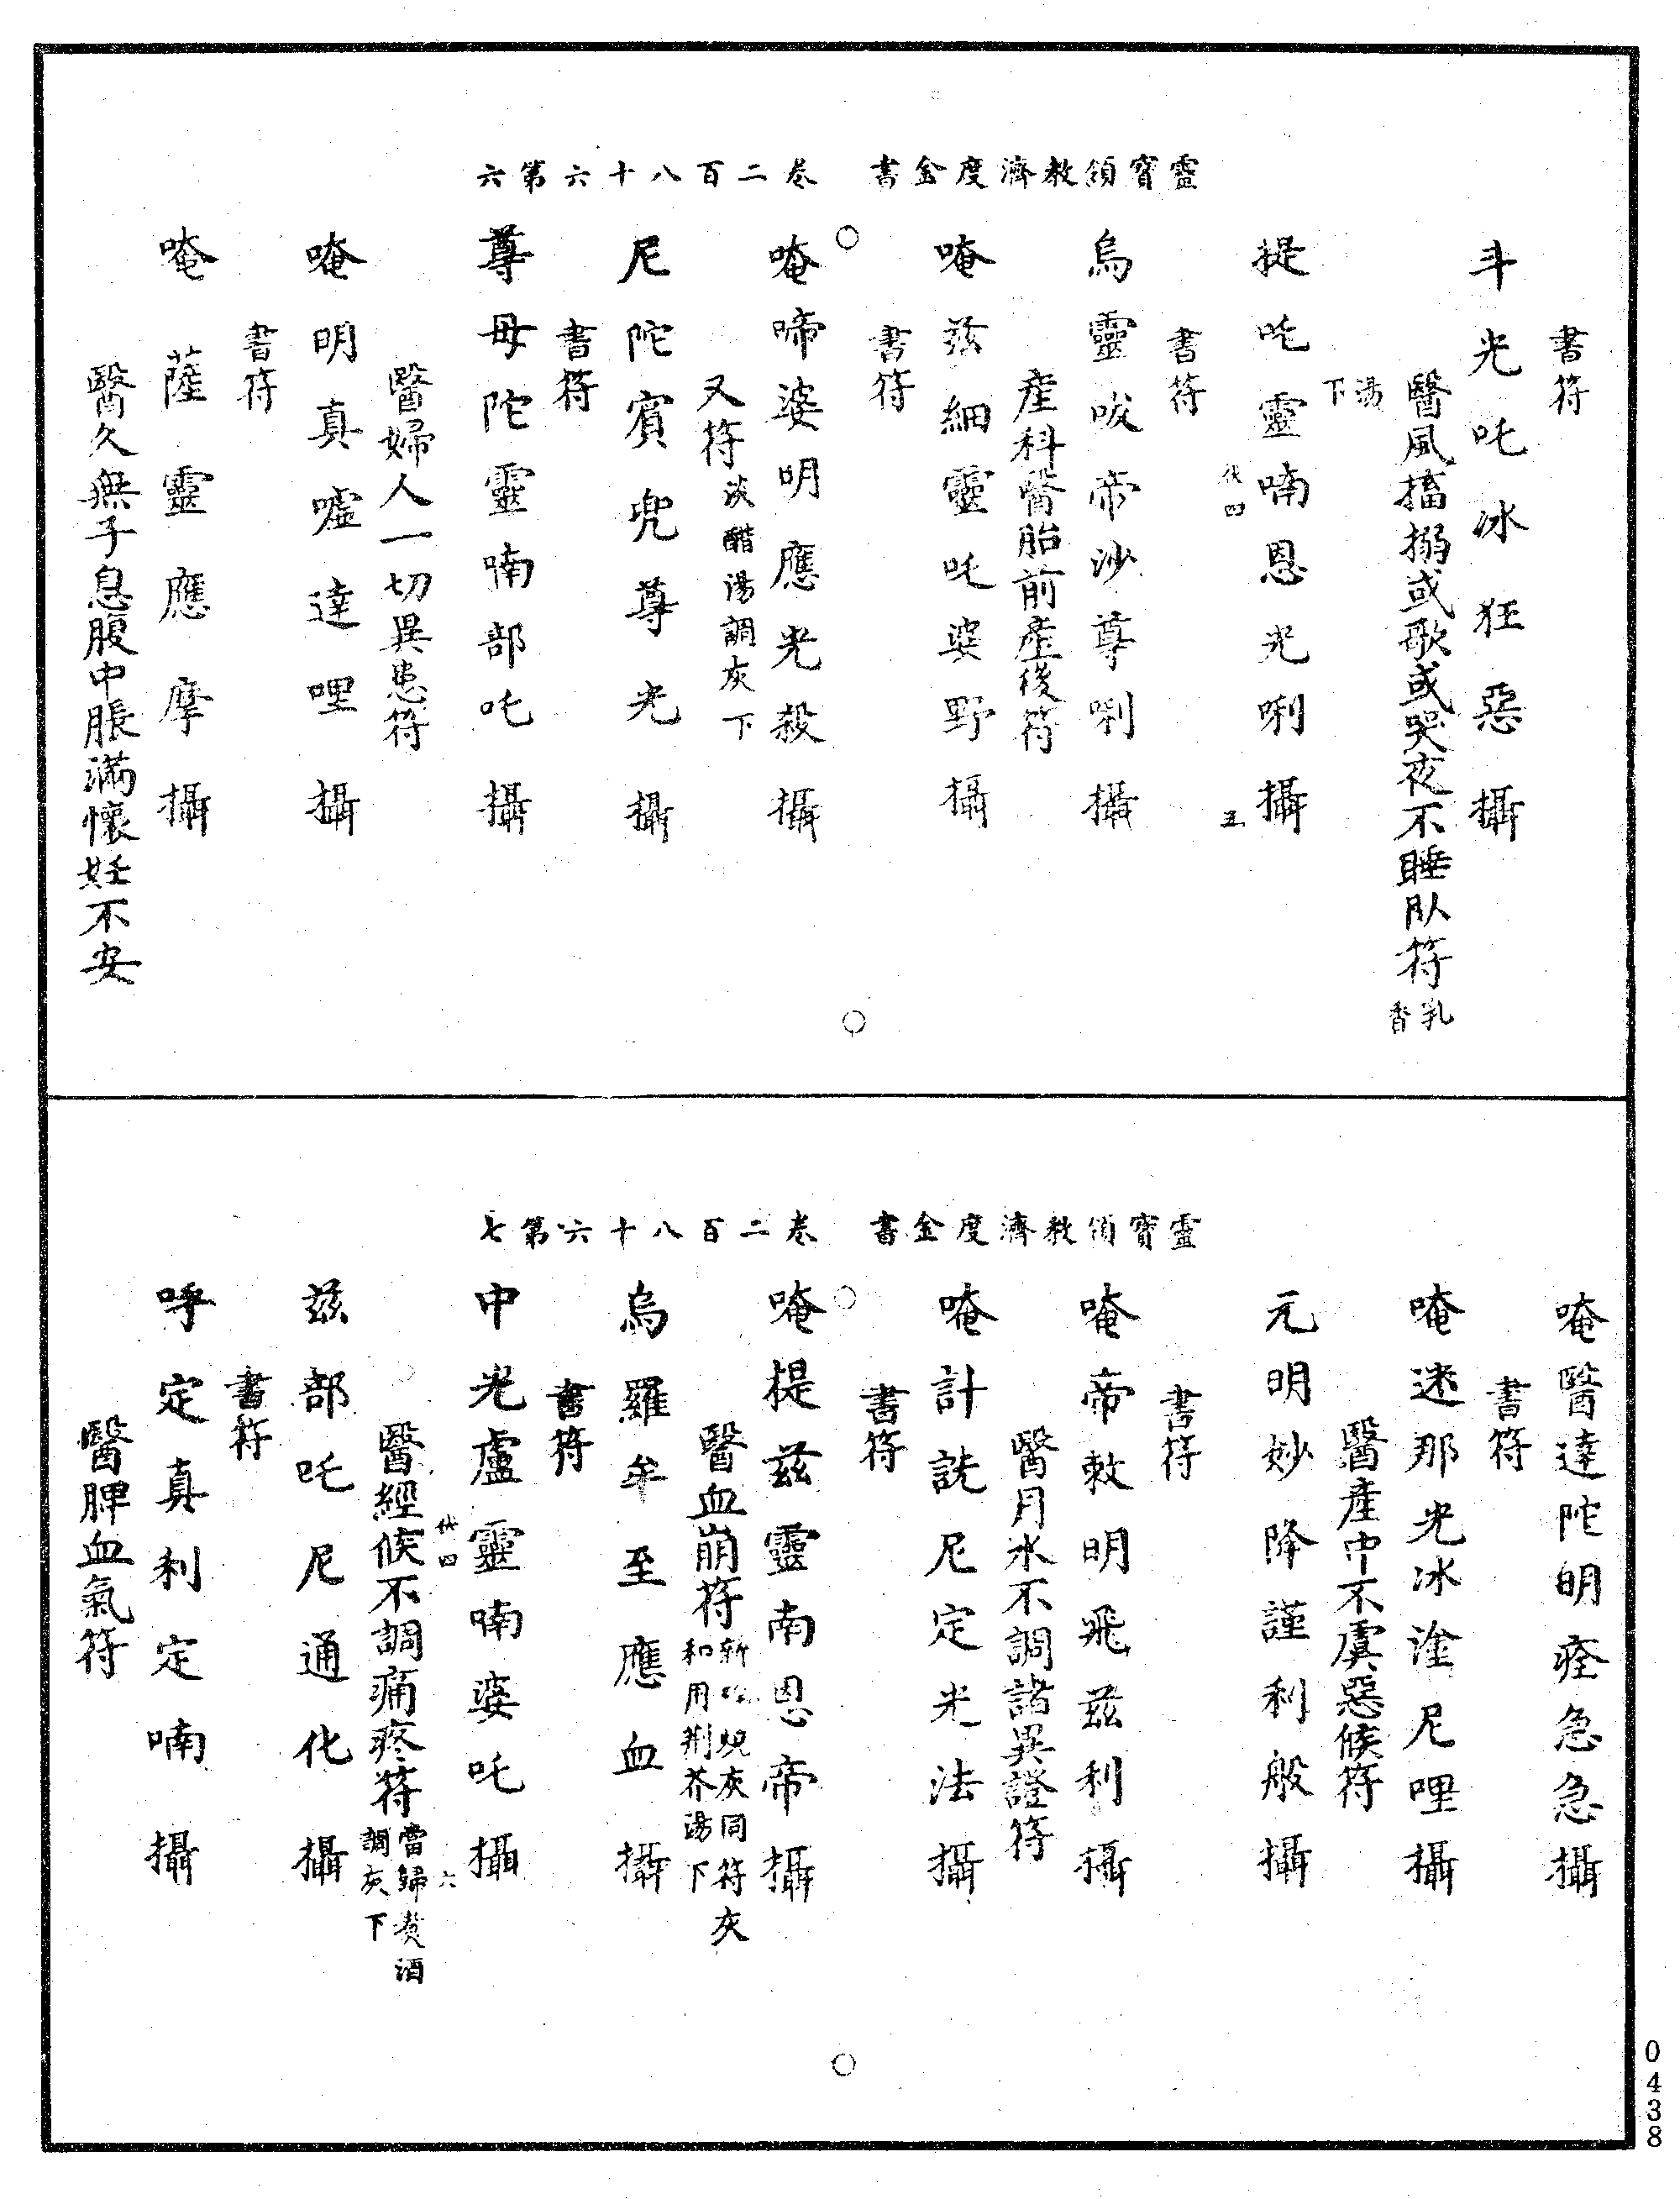 靈寶領教濟度金書　卷二百八十六第六
書符
斗光吒冰狂惡攝
醫風搐搦或歌或哭夜不睡臥符乳香
湯下
提吒靈喃恩光唎攝
伐四　五
書符
烏靈唆帝沙尊唎攝
產科醫胎前產後符
唵茲細靈吒婆野攝
書符
唵啼婆明應光殺攝
又符淡醋湯調灰下
尼陀賓兜尊光攝
書符
尊母陀靈喃部吒攝
醫婦人一切異患符
唵明真噓達哩攝
書符
唵薩靈應摩攝
醫久無子息腹中脹滿懷妊不安
靈寶領教濟度金書　卷二百八十六第七
唵醫達陀明痊急急攝
書符
唵迷那光冰淦尼哩攝
醫產中不虞惡候符
元明妙降謹利般攝
書符
唵帝敕明飛茲利攝
醫月水不調諸異證符
唵計詵尼定光法攝
書符
唵提茲靈南恩帝攝
醫血崩符新灰同符灰
和用荊芥湯下
烏羅牟至應血攝
書符
中光盧靈喃婆吒攝
伐四　六
醫經候不調痛疼符當歸煑酒
調灰下
茲部吒尼通化攝
書符
呼定真利定喃攝
醫脾血氣符
0438